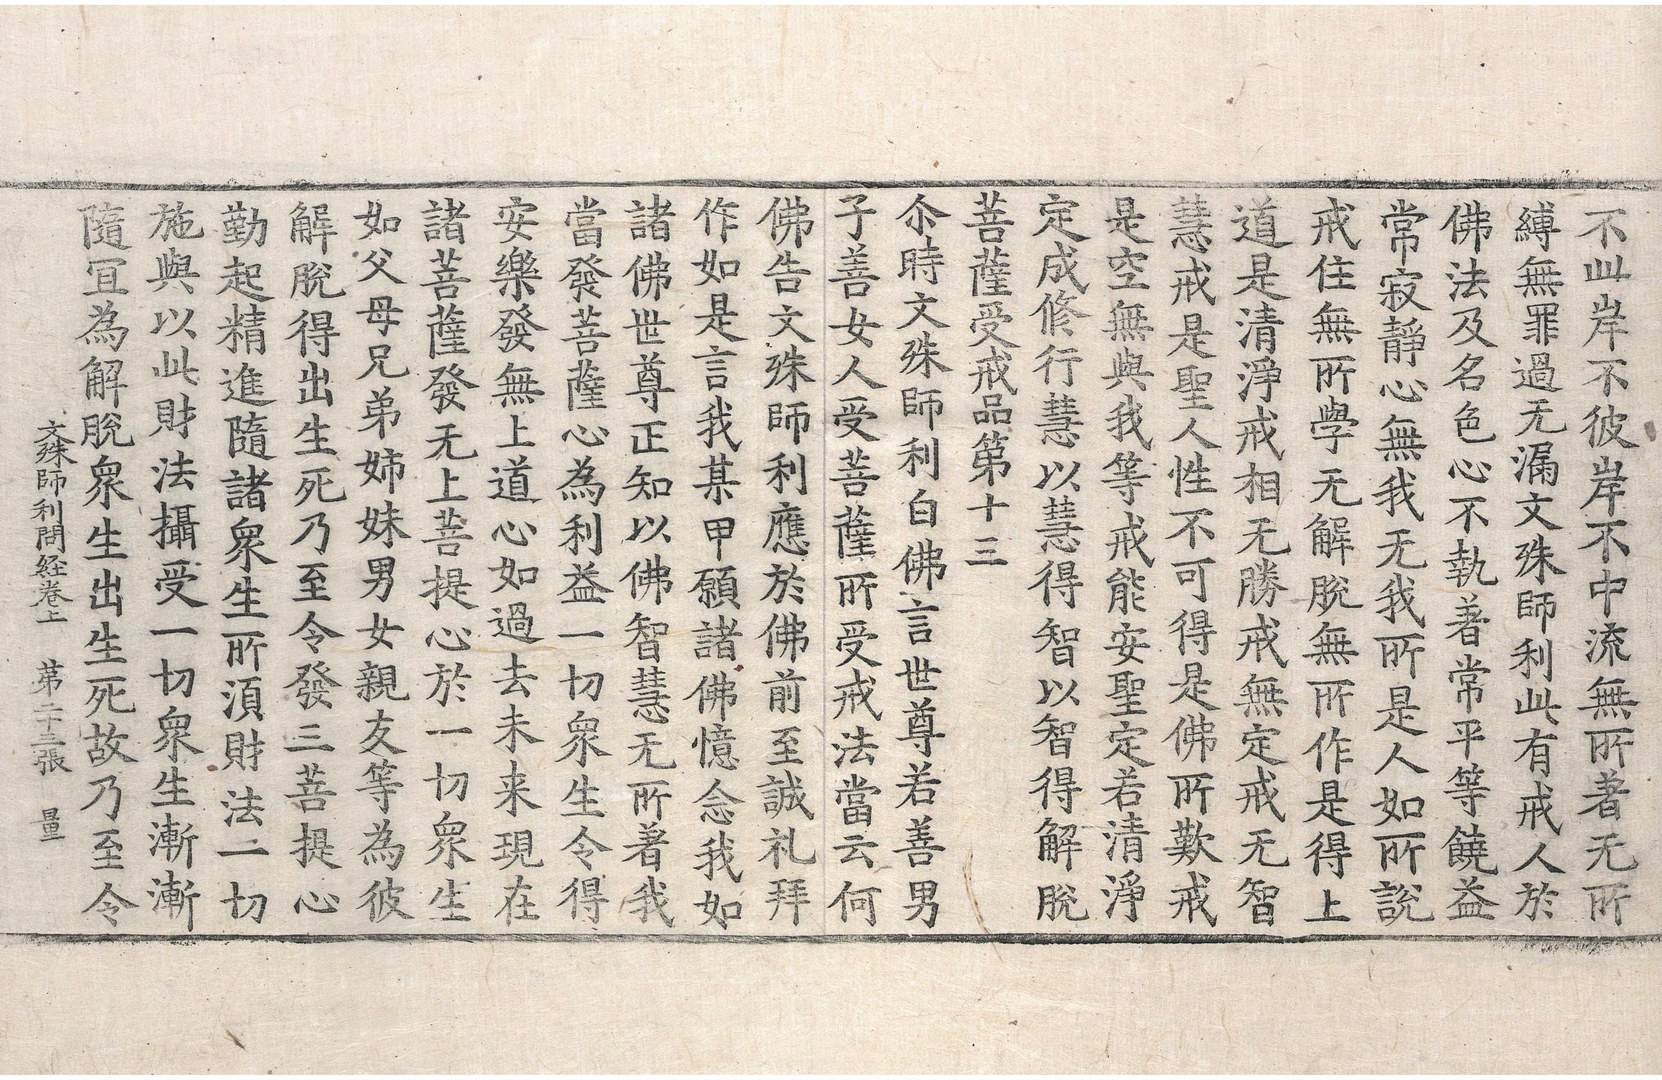 不此岸不彼岸不中流無所著无所
縛無罪過无漏文殊師利此有戒人於
佛法及名色心不執著常平等饒益
常寂靜心無我无我所是人如所說
戒住無所學无解脫無所作是得上
道是清淨戒相无勝戒無定戒无智
慧戒是聖人性不可得是佛所歎戒
是空無與我等戒能安聖定若清淨
定成修行慧以慧得智以智得解脫
菩薩受戒品第十三
尒時文殊師利白佛言世尊若善男
子善女人受菩薩所受戒法當云何
佛告文殊師利應於佛前至誠礼拜
作如是言我某甲願諸佛憶念我如
諸佛世尊正知以佛智慧无所著我
當發菩薩心為利益一切眾生令得
安樂發無上道心如過去未来現在
諸菩薩發无上菩提心於一切眾生
如父母兄弟姊妹男女親友等為彼
解脫得出生死乃至令發三菩提心
勤起精進隨諸眾生所湏財法一切
施與以此財法攝受一切眾生漸漸
隨冝為解脫眾生出生死故乃至令
文殊師利問経卷上 第二十三張 量